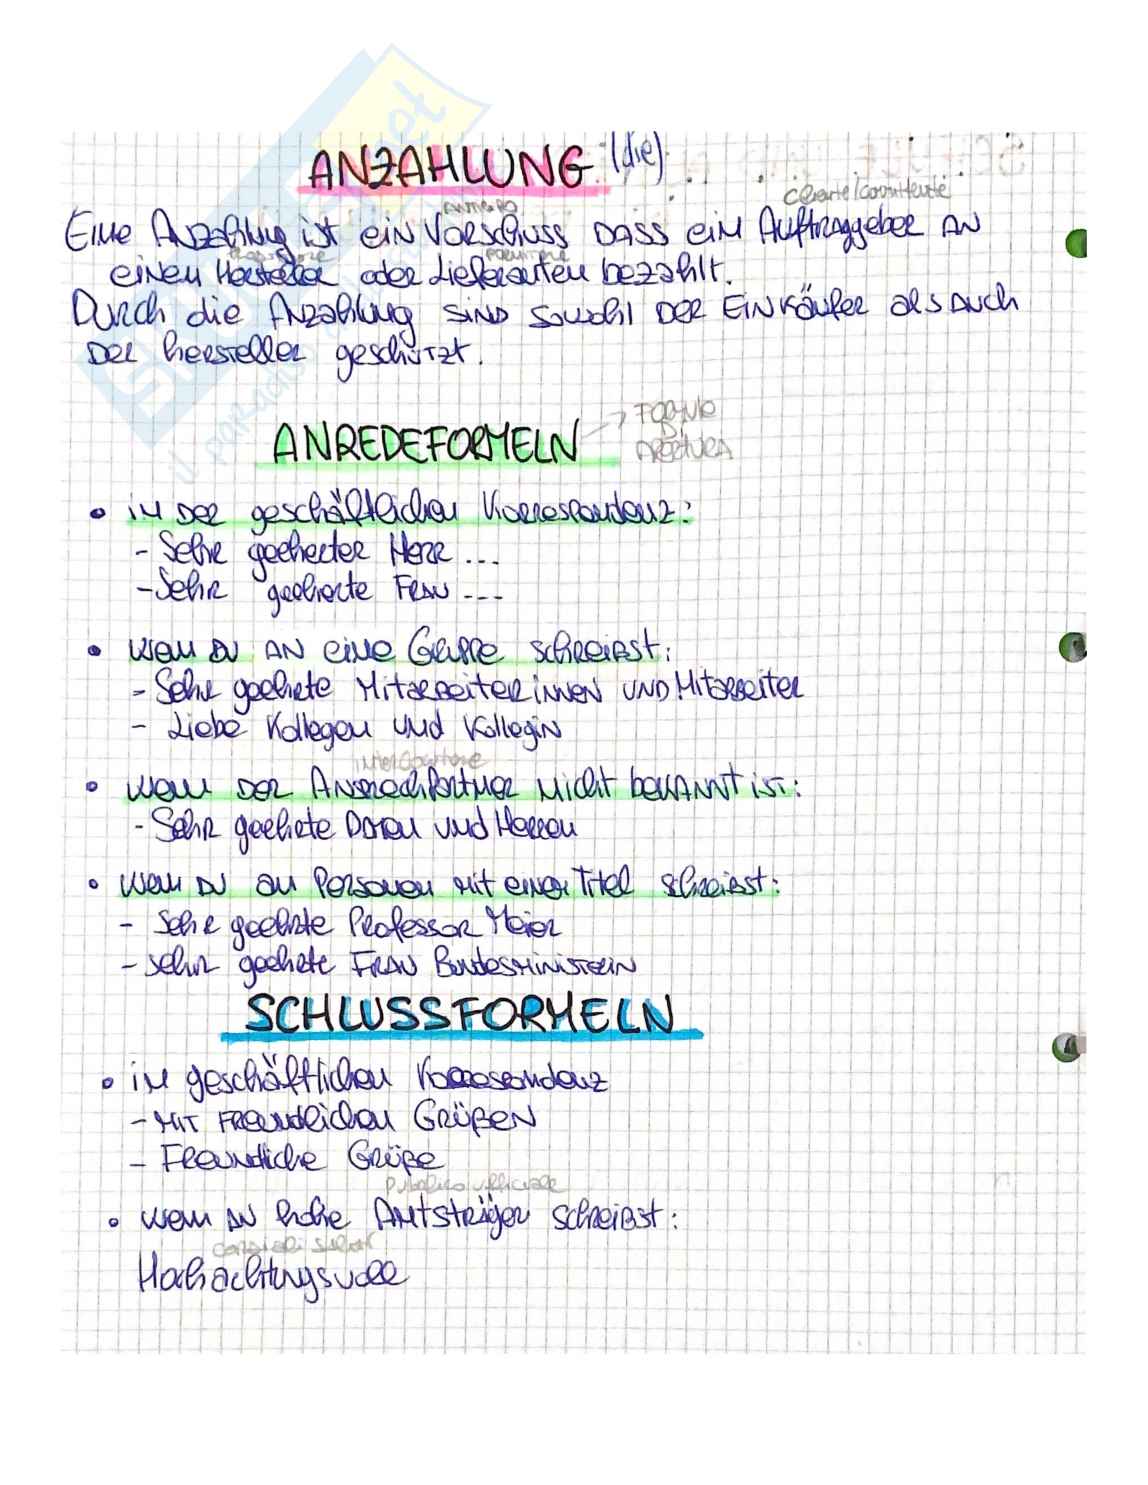 ANZAHLUNG (die)
cliente/committente
anticipo
Eine Anzahlung ist ein Vorschuss dass ein Auftraggeber an
produttore fornitore
einen Hersteller oder Lieferanten bezahlt.
Durch die Anzahlung sind sowohl der Einkäufer als auch
der hersteller geschützt.
ANREDEFORMELN → FORMULE
DI
APERTURA
• in der geschäftlichen Korrespondenz:
- Sehr geehrter Herr ...
- Sehr geehrte Frau ---
• wenn du an eine Gruppe schreibst:
- Sehr geehrte Mitarbeiterinnen und Mitarbeiter
- Liebe Kollegen und Kollegin
interlocutore
• wenn der Ansprechpartner nicht bekannt ist:
- Sehr geehrte Damen und Herren
• wenn du an Personen mit einer Titel schreibst:
- Sehr geehrte Professor Meier
- sehr geehrte Frau Bundesministerin
SCHLUSSFORMELN
• im geschäftlichen Korrespondenz
- Mit freundlichen Grüßen
- Freundliche Grüße
pubblico ufficiale
• wenn du hohe Amtsträger schreibst:
cordiali saluti
Hochachtungsvoll